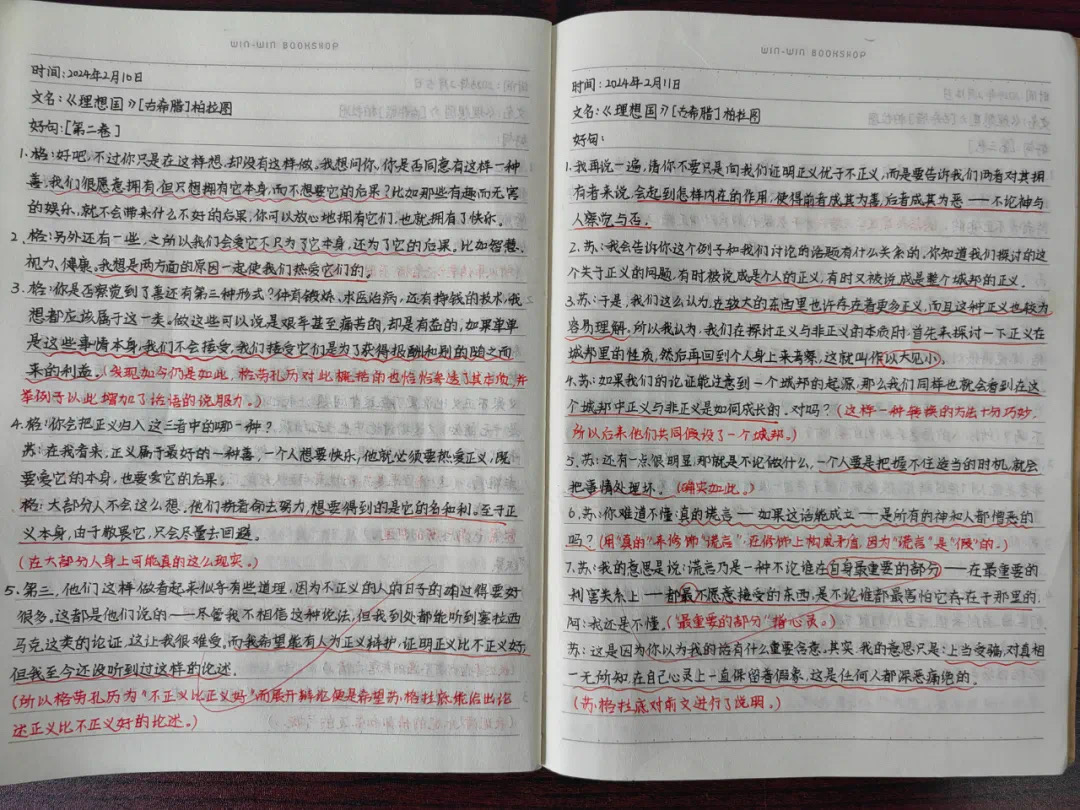 WIN-WIN BOOKSHOP
时间:2024年2月10日
文名:《理想国》[古希腊]柏拉图
好句:[第二卷]
1.格:好吧,不过你只是在这样想,却没有这样做。我想问你,你是否同意有这样一种
善:我们很愿意拥有,但只想拥有它本身,而不想要它的后果?比如那些有趣而无害
的娱乐,就不会带来什么不好的后果,你可以放心地拥有它们,也就拥有了快乐。
2.格:另外还有一些,之所以我们会爱它不只为了它本身,还为了它的后果,比如智慧、
视力、健康。我想是两方面的原因一定使我们热爱它们的。
3.格:你是否察觉到了善还有第三种形式?体育锻炼、求医治病,还有挣钱的技术,我
想都应该属于这一类。做这些可以说是艰辛甚至痛苦的,却是有益的,如果单单
是这些事情本身,我们不会接受,我们接受它们是为了获得报酬和别的随之而
来的利益。(发现如今仍是如此,格劳孔历对此概括的也恰恰渗透了其本质,并
举例子以此增加了话语的说服力。)
4.格:你会把正义归入这三者中的哪一种?
苏:在我看来,正义属于最好的一种善,一个人想要快乐,他就必须要热爱正义,既
要爱它的本身,也要爱它的后果。
格:大部分人不会这么想,他们拼着命去努力,想要得到的是它的名和利。至于正
义本身,由于敬畏它,只会尽量去回避。
(在大部分人身上可能真的这么现实。)
5.第三,他们这样做看起来似乎有些道理,因为不正义的人的日子的确过得要好
很多。这都是他们说的——尽管我不相信这种说法,但我到处都能听到塞拉西
马克这类的论证,这让我很难受。而我希望能有人为正义辩护,证明正义比不正义好,
但我至今还没听到过这样的论述.
(所以格劳孔历为“不正义比正义好”而展开辩论便是希望苏格拉底能给出论
述正义比不正义好的论述。)
WIN-WIN BOOKSHOP
时间:2024年2月11日
文名:《理想国》[古希腊]柏拉图
好句:
1.我再说一遍,请你不要只是向我们证明正义优于不正义,而是要告诉我们两者对其拥
有者来说,会起到怎样内在的作用,使得前者成其为善,后者成其为恶——不论神与
人察觉与否.
2.苏:我会告诉你这个例子和我们讨论的话题有什么关系的,你知道我们探讨的这
个关于正义的问题,有时被说成是个人的正义,有时又被说成是整个城邦的正义.
3.苏:于是,我们这么认为,在较大的东西里也许存在着更多正义,而且这种正义也较为
容易理解,所以我认为,我们在探讨正义与非正义的本质时,首先来探讨一下正义在
城邦里的性质,然后再回到个人身上来考察,这就叫作以大见小.
4.苏:如果我们的论证能注意到一个城邦的起源,那么我们同样也就会看到在这
个城邦中正义与非正义是如何成长的,对吗?(这样一种转换的方法十分巧妙.
所以后来他们共同假设了一个城邦。)
5.苏:还有一点很明显,那就是不论做什么,一个人要是把握不住适当的时机,就会
把事情处理坏。(确实如此。)
6.苏:你难道不懂:真的谎言——如果这话能成立——是所有的神和人都憎恶的
吗?(用“真的”来修饰“谎言”,在修饰上构成矛盾,因为“谎言”是“假”的.)
7.苏:我的意思是说:谎言乃是一种不论谁在自身最重要的部分——在最重要的
利害关系上——都最不愿意接受的东西,是不论谁都最害怕它存在于那里的.
阿:我还是不懂。(“最重要的部分”指心灵。)
苏:这是因为你以为我的话有什么重要含意,其实,我的意思只是:上当受骗,对真相
一无所知,在自己心灵上一直保留着假象,这是任何人都深恶痛绝的。
(苏格拉底对前文进行了说明。)